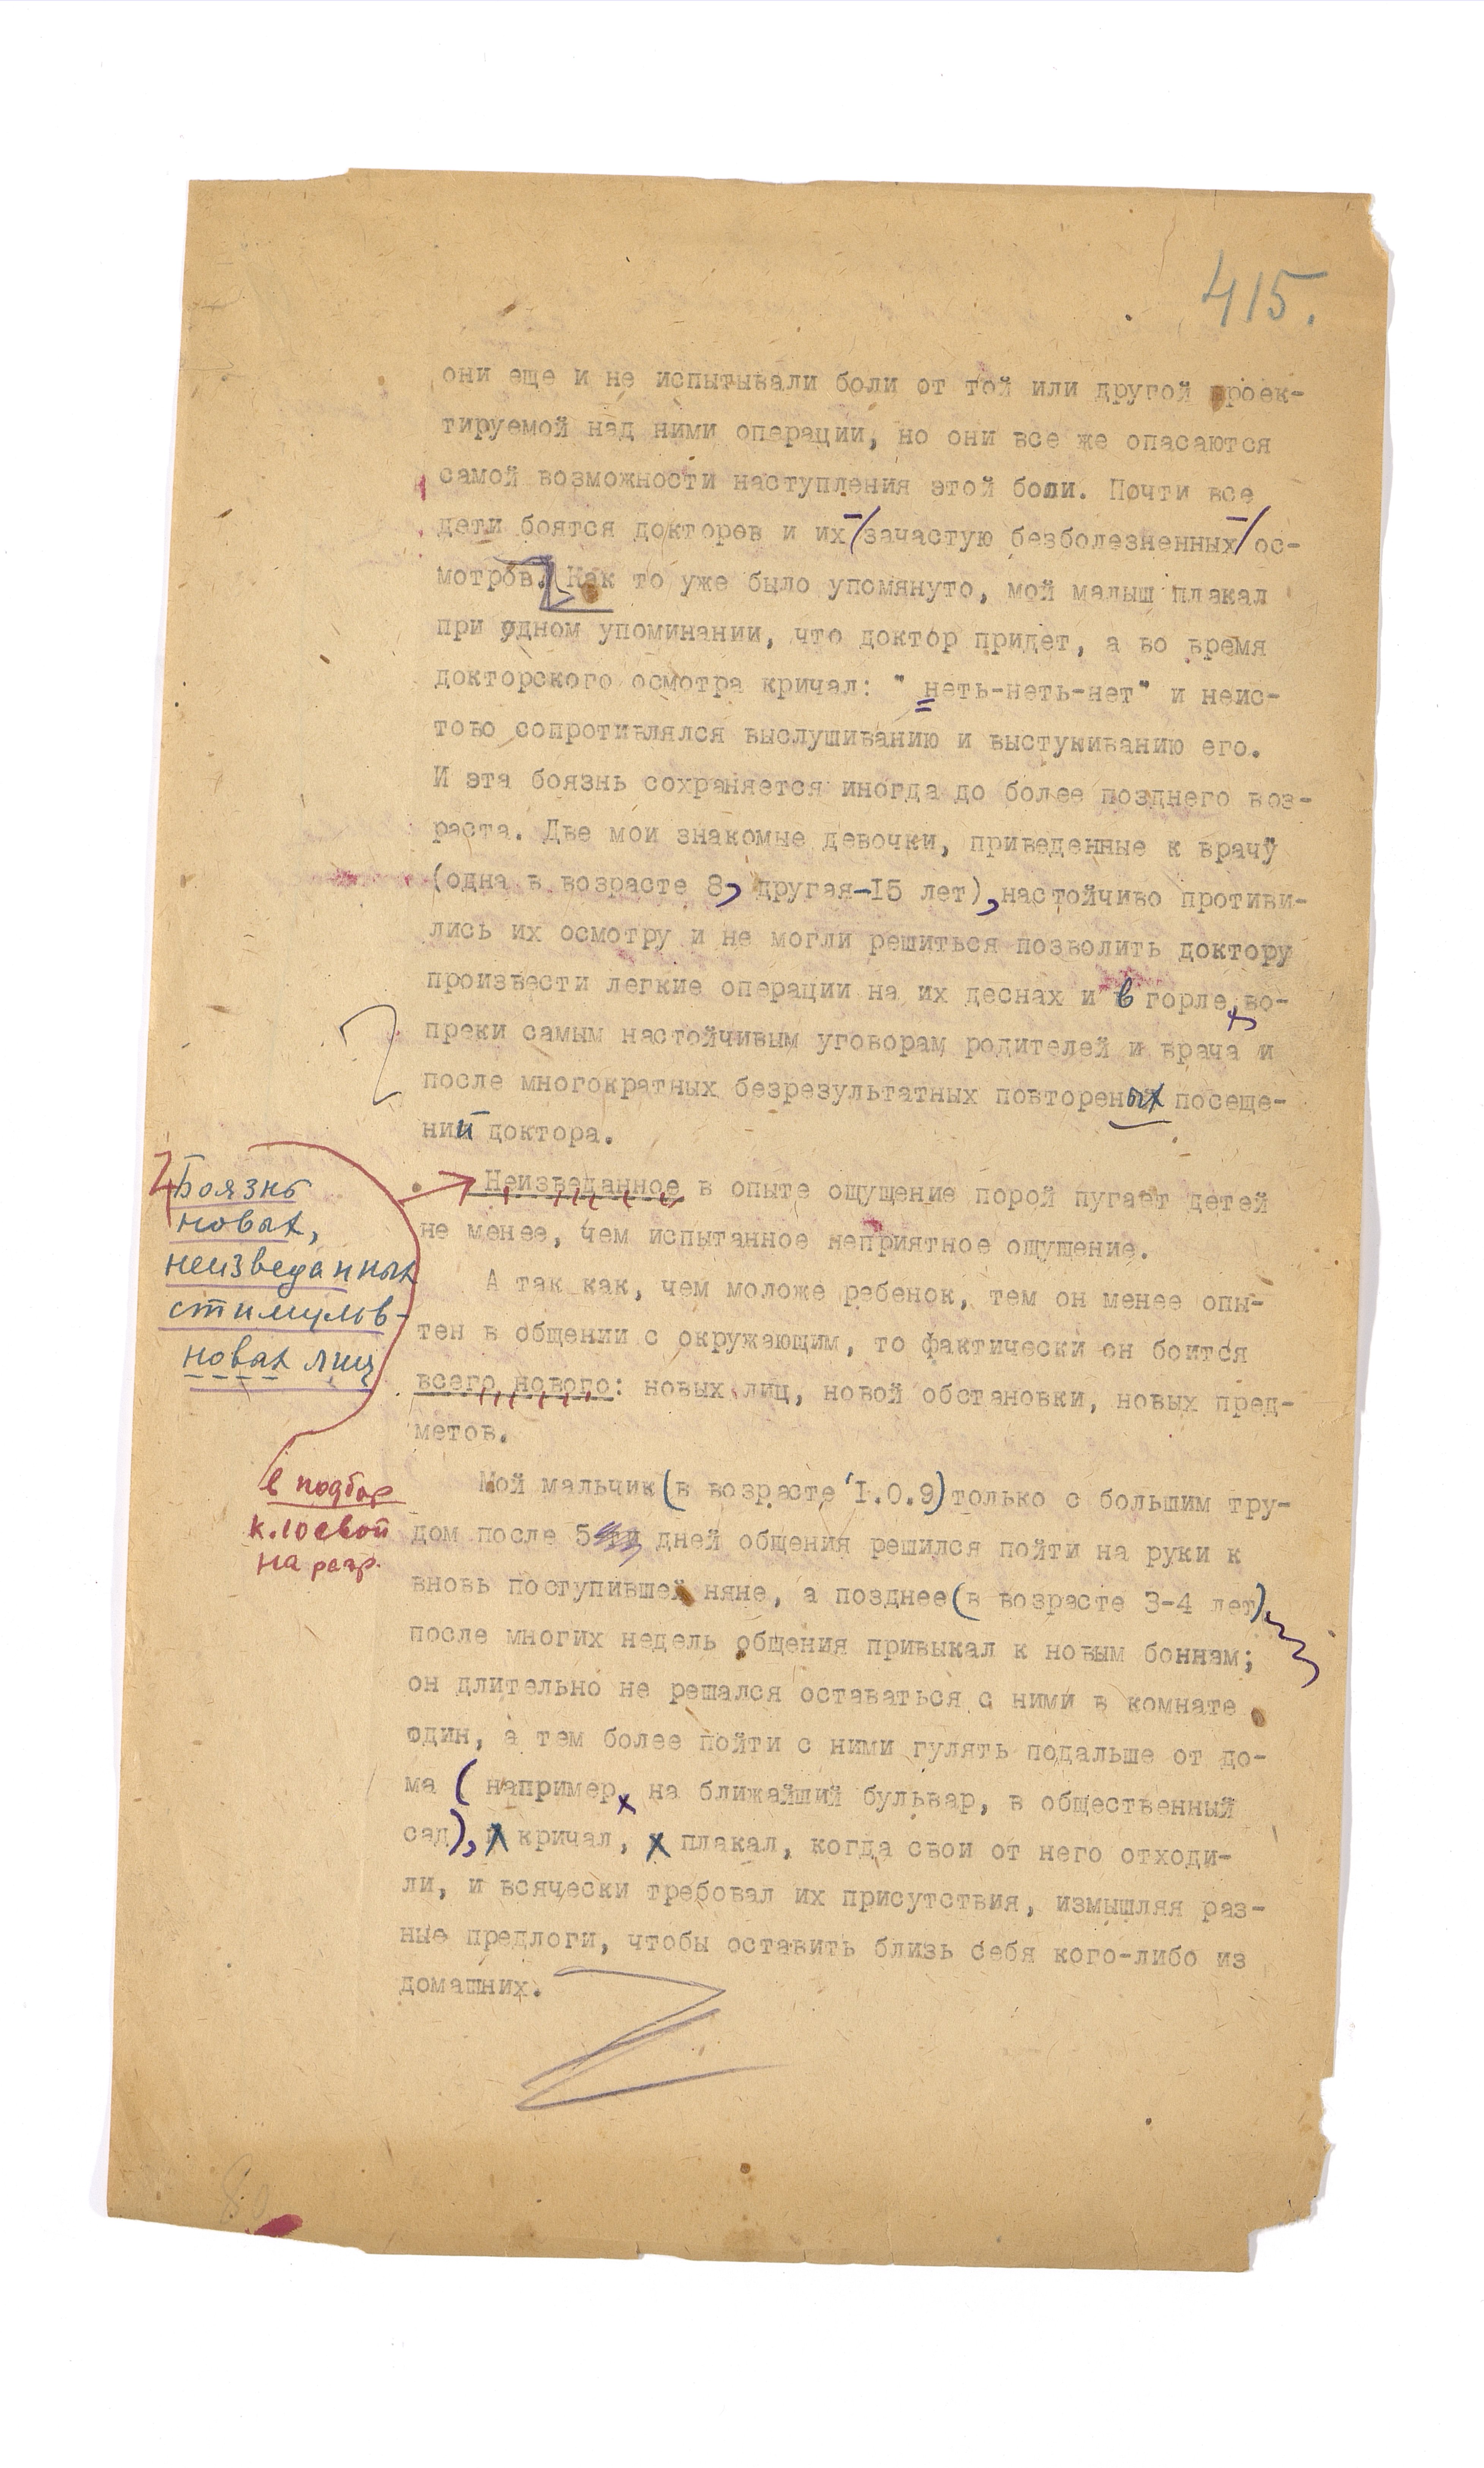 415.
они еще и не испытывали боли от той или другой проек-
тируемой над ними операции, но они все же опасаются
самой возможности наступления этой боли. Почти все
дети боятся докторов и их зачастую безболезненных ос-
мотров. Как то уже было упомянуто, мой малыш плакал
при одном упоминании, что доктор придет, а во время
докторского осмотра кричал: " неть-неть-нет" и неис-
тово сопротивлялся выслушиванию и выстукиванию его.
И эта боязнь сохраняется иногда до более позднего воз-
раста. Две мои знакомые девочки, приведенные к врачу
(одна в возрасте 8, другая-15 лет), настойчиво противи-
лись их осмотру и не могли решиться позволить доктору
произвести легкие операции на их деснах и в горле во-
преки самым настойчивым уговорам родителей и врача и
после многократных безрезультатных повторных посеще-
ний доктора.
Боязнь
новых,
неизведанных
стимулов-
новых лиц
Неизведанное в опыте ощущение порой пугает детей
не менее, чем испытанное неприятное ощущение.
А так как, чем моложе ребенок, тем он менее опы-
тен в общении с окружающим, то фактически он боится
всего нового: новых лиц, новой обстановки, новых пред-
метов.
в подбор
на
Мой мальчик (в возрасте 1.0.9) только с большим тру-
дом после 5 дней общения решился пойти на руки к
вновь поступившей няне, а позднее (в возрасте 3-4 лет)
после многих недель общения привыкал к новым боннам;
он длительно не решался оставаться с ними в комнате
один, а тем более пойти с ними гулять подальше от до-
ма ( например на ближайший бульвар, в общественный
сад), кричал, плакал, когда свои от него отходи-
ли, и всячески требовал их присутствия, измышляя раз-
ные предлоги, чтобы оставить близь себя кого-либо из
домашних.